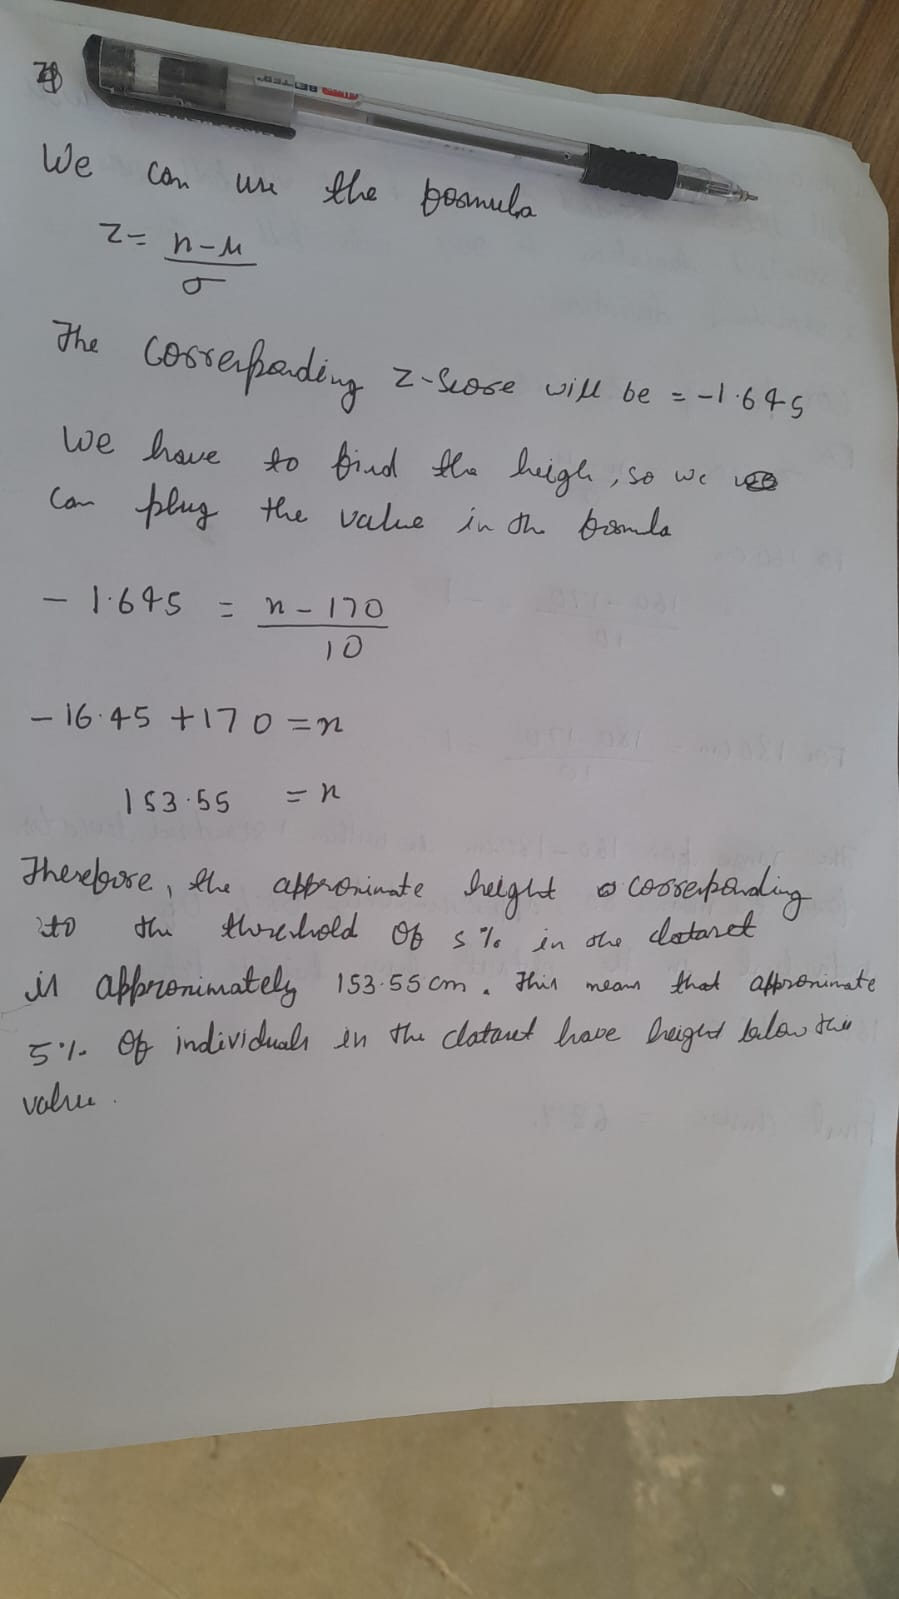 We can use the formula
z = x-μ
σ
The corresponding z-score will be = -1.645
We have to find the heigh, so we
can plug the value in the formula
- 1.645 = x - 170
10
- 16.45 + 170 = x
153.55 = x
Therefore, the approximate height corresponding
to the threshold of 5% in the dataset
is approximately 153.55 cm. This means that approximate
5% of individuals in the dataset have height below this
value.